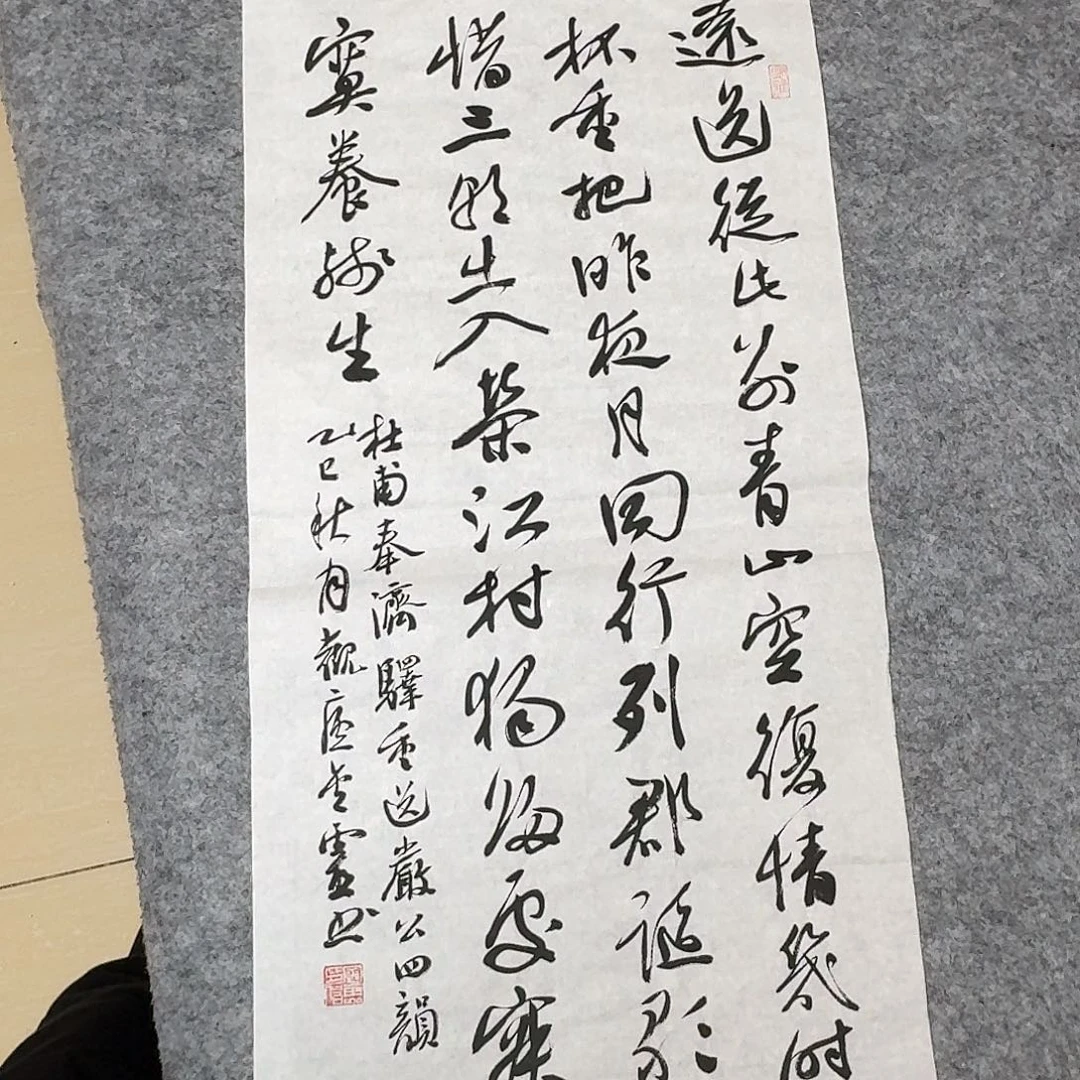 遠送從此別青山空復情幾時
杯重把昨夜月同行列郡謳歌
惜三朝出入榮江村獨歸處寂
寞養殘生
杜甫奉濟驛重送嚴公四韻
乙巳秋月觀